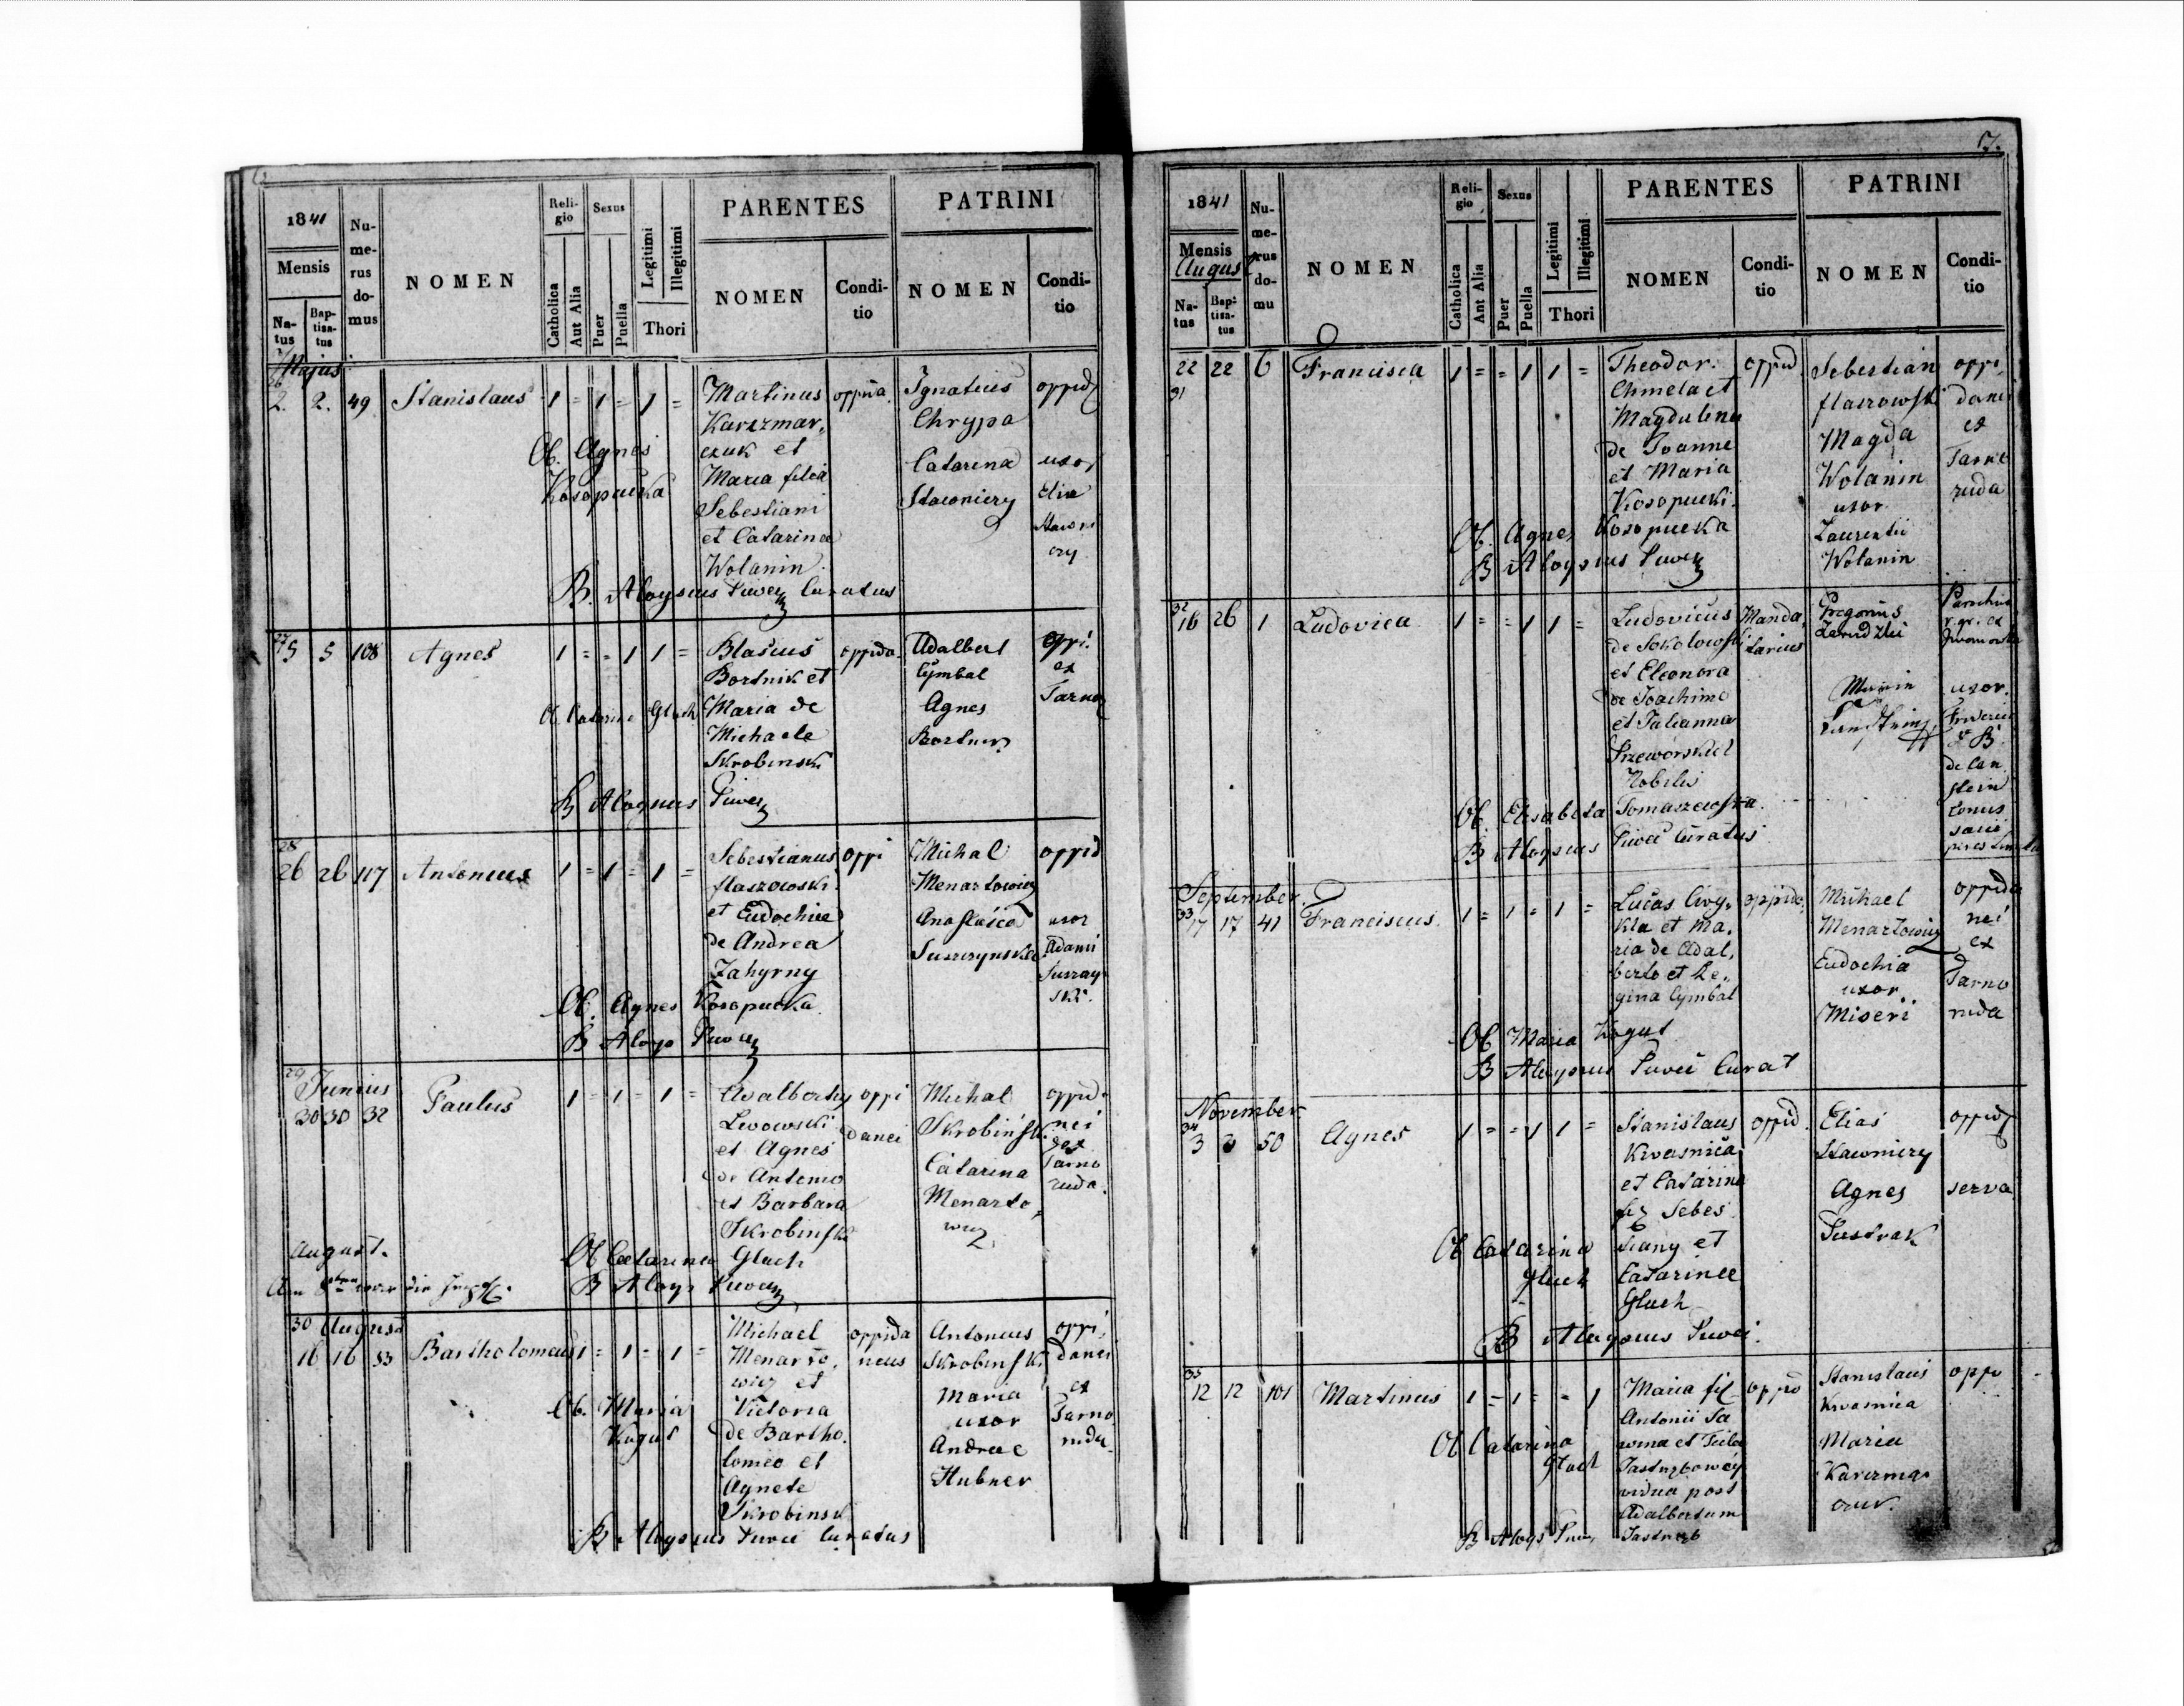 1841
Mensis
Na-
tus
Bap-
tisa-
tus
Nu-
me-
rus
do-
mus
NOMEN
Reli-
gio
Catholica
Aut Alia
Sexus
Puer
Puella
Legitimi
Illegitimi
Thori
PARENTES
NOMEN
Condi-
tio
PATRINI
NOMEN
Condi-
tio
Majus
26
2. 2. 49 Stanislaus 1 = 1 = 1 =
Martinus
Karczmar,
czuk et
Maria filia
Sebestiani
et Catarina
Wolanin
Ignatius
Chrypa
Catarina
Stawniczy
oppid
uxor
Elia
Ob. Agnes
Kosopucka
B. Aloysius Curatus
27
5 5 108 Agnes 1 = = 1 1 =
Blasius
Bortnik et
Maria de
Michaele
Skrobinski
oppida
Adalbert
Cymbal
Agnes
oppi.
ex
Ob Catarina Gluch
B Aloysius
28
26 26 117 Antonius 1 = 1 = 1 =
Sebestianus
flaszowski
et Eudochia
de Andrea
Zahyrny
oppi
Michal
Menartowicz
Anastasia
oppid
uxor
Adami
Ob. Agnes Kosopucka
B Aloys
29
Junius
30 30 32 Paulus 1 = 1 = 1 =
Lwowski
et Agnes
de Antonio
et Barbara
Skrobinski
oppi
danei
Michal
Skrobinski
Catarina
Menarto,
wicz
oppid.
nei
ex
Tarno
ruda.
Ob Catarina Gluch
B Aloys
August.
30 August
16 16 53 Bartholomeus 1 = 1 = 1 =
Michael
Menarto,
wicz et
Victoria
de Bartho.
lomeo et
Agnete
Skrobinsk
oppida
neus
Antonius
Skrobinski
Maria
uxor
Andreae
Hubner
oppi,
danei
ex
Tarno
ruda
Ob. Maria
Kogut
B Aloysius Curatus
7.
1841
Mensis
August
Na-
tus
Bap-
tisa-
tus
Nu-
me-
rus
do-
mu
NOMEN
Reli-
gio
Catholica
Ant Alia
Sexus
Puer
Puella
Legitimi
Illegitimi
Thori
PARENTES
NOMEN
Condi-
tio
PATRINI
NOMEN
Condi-
tio
22 22 6 Francisca 1 = = 1 1 =
31
Theodor.
Chmela et
Magdulena
de Joanne
et Maria
Kosopucki
oppid
Sebestian
flaszowski
Magda
Wolanin
uxor
Laurentii
Wolanin
oppi,
danei
ex
Tarno
ruda
Ob. Agnes Kosopucka
B Aloysius
32
16 26 1 Ludovica 1 = = 1 1 =
Ludovicus
de Sokolowski
et Eleonora
de Joachimo
et Julianna
Nobilis
Manda,
tarius
Gregorius
uxor.
de Can
stein
Ob. Elisabeta Tomaszewska
B Aloysius Curatus
September.
33
17 17 41 Franciscus 1 = 1 = 1 =
Lucas
kla et Ma.
ria de Adal,
berto et Re,
gina Cymbal
oppida,
Michael
Menartowicz
Eudochia
uxor
Miseri
oppida
nei
ex
Tarno
ruda
Ob Maria Kogut
B Aloysius Curat
November.
34
3 3 50 Agnes 1 = = 1 1 =
Stanislaus
Kwasnica
et Catarina
Sebes
tiany et
Catarinee
Gluch
oppid.
Elias
Stawniczy
Agnes
Pastrak
oppid
serva
Ob Catarina
Gluch
B Aloysius
35
12 12 101 Martinus 1 = 1 = = 1
Maria fil
Antonii Sa
vidua post
Adalbertum
Jastrzeb
oppid
Stanislaus
Kwasnica
Maria
Karczmar
oppi
Ob Catarina
Gluch
B Aloys